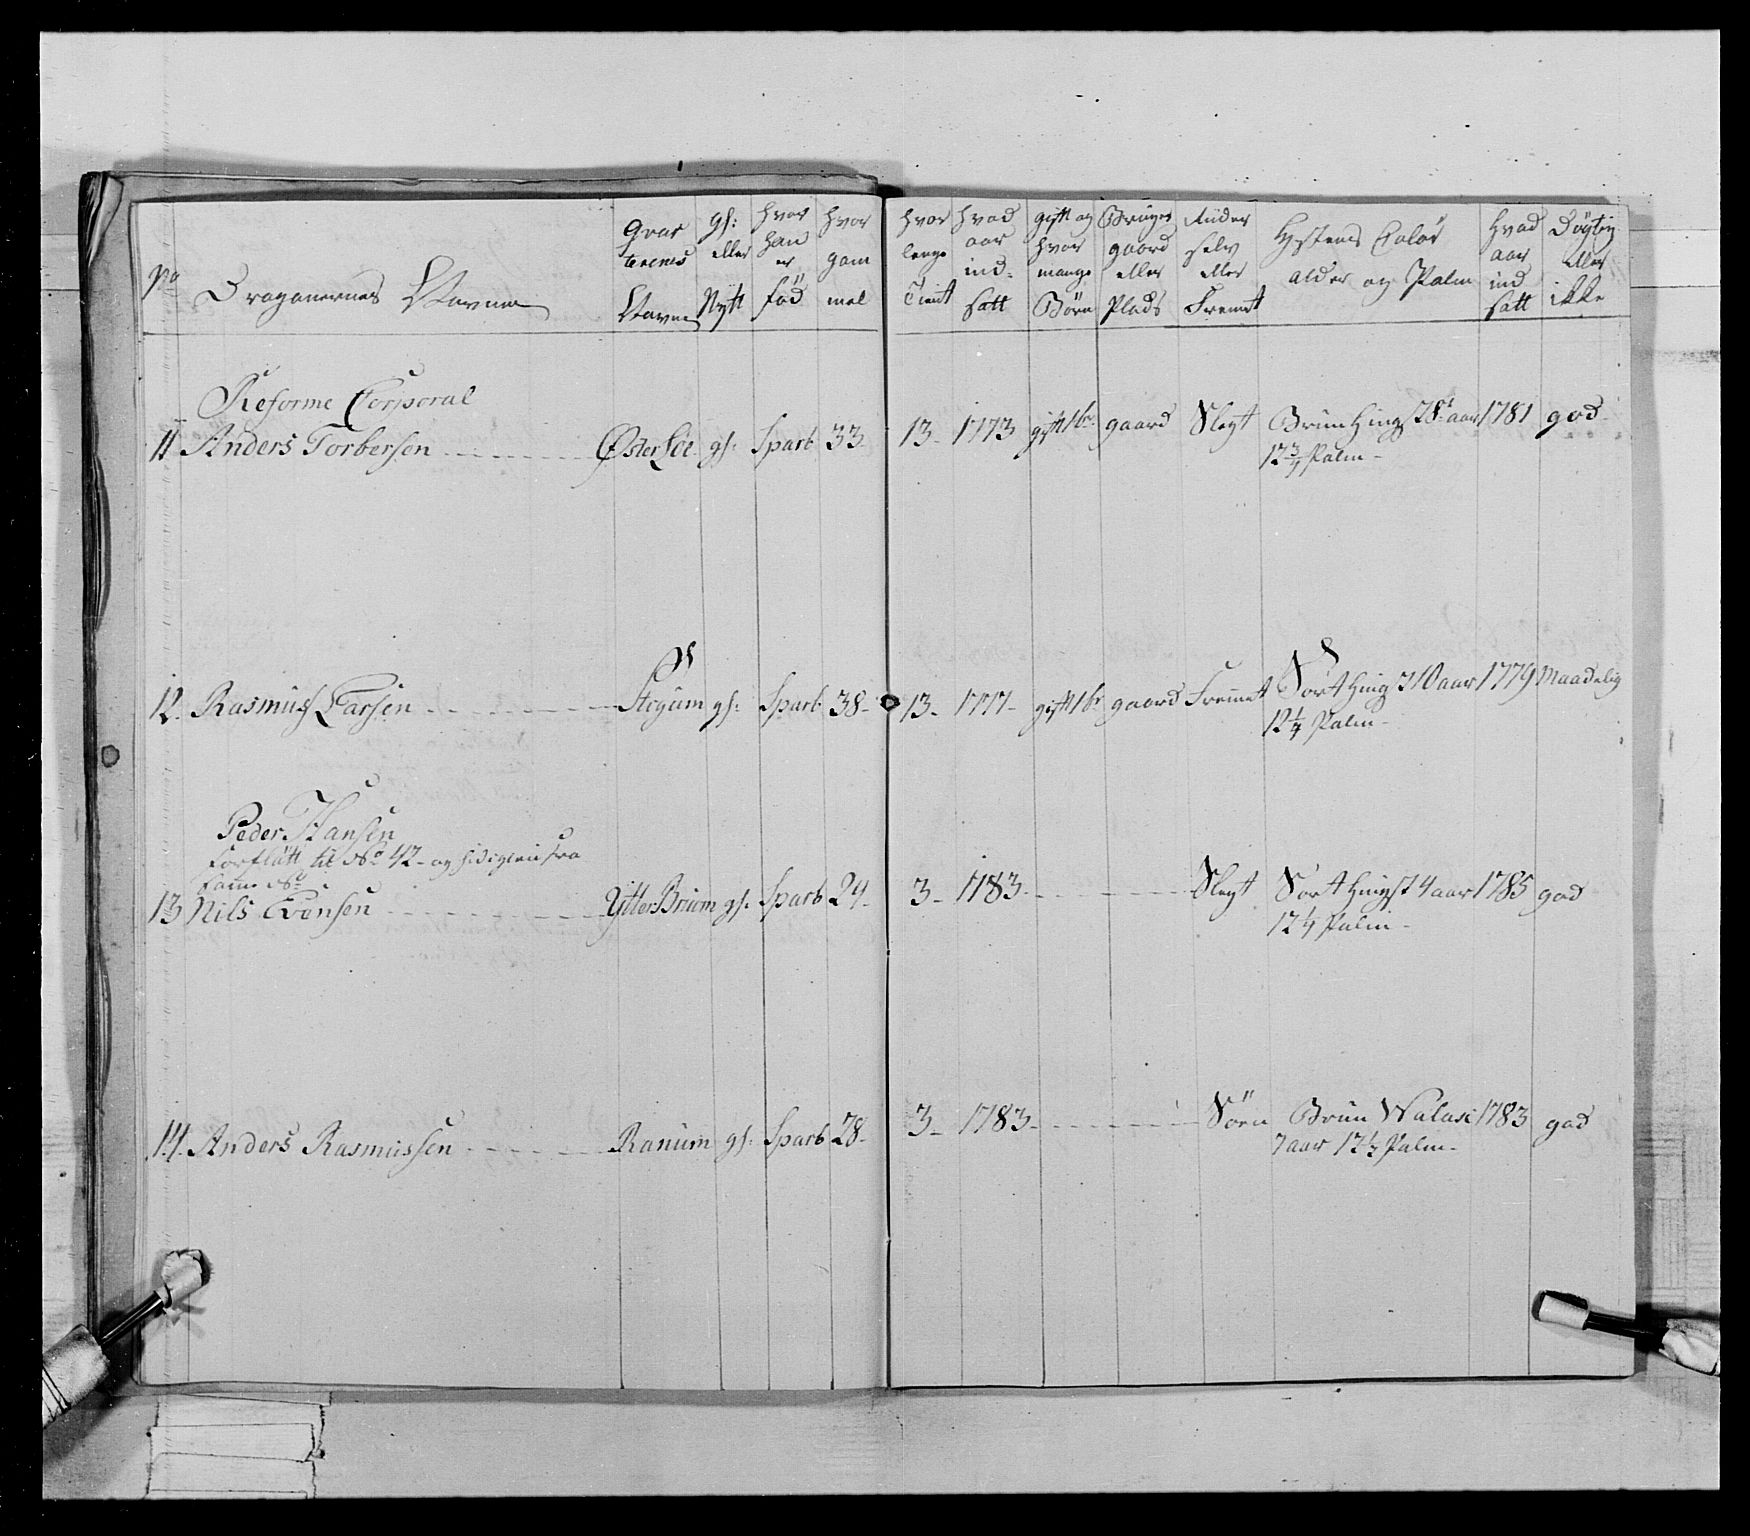 No
Dragonernes Navne
Qvar
terenes
Navne
gl:
eller
Nytt
hvor
han
er
fød
hvor
gam
mel
hvor
lenge
Tient
hvad
aar
ind-
satt
gift og
hvor
mange
Børn
Bruger
gaard
eller
Plads
Riider
selv
eller
Fremet
Hestens Colør
alder og Palm
Hvad
aar
ind
satt
Dygtig
eller
ikke
Reforme Corporal
11 Anders Torbersen Øster gl: Sparb 33 13 1773 gift 1 br gaard Slegt Bruun Hingst 8 aar 1781 god
12 3/4 Palm
12. Rasmus Larsen gl: Sparb 38 13 1777 gift 1 br gaard Fremet Sort Hingst 10 aar 1779 Maadelig
12 1/4 Palm
Peder Hansen
forflütt til No 42 og
samme No
13 Nils Evensen Ytter gl: Sparb 24 3 1783 Slegt Sort Hingst 4 aar 1785 god
12 1/4 Palm
14. Anders Rasmussen Ranum gl: Sparb 28 3 1783 Søen Bruun Walak 1783 god
7 aar 12 1/2 Palm